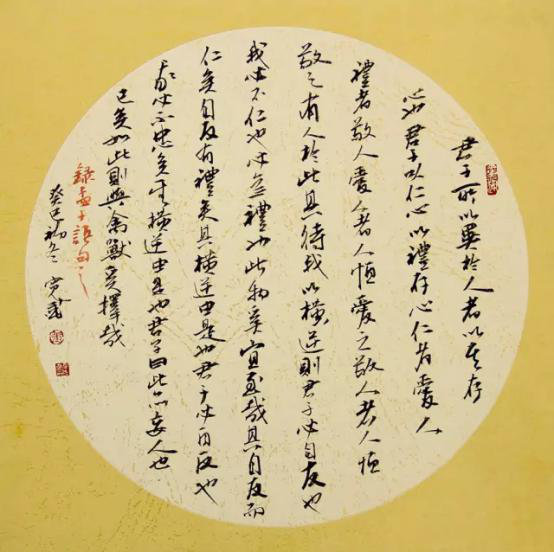 君子所以異於人者以其存
心也君子以仁心以禮存心仁者愛人
禮者敬人愛人者人恒愛之敬人者人恒
敬之有人於此其待我以橫逆則君子必自反也
我必不仁也必無禮也此物奚宜至哉其自反而
仁矣自反有禮矣其橫逆由是也君子必自反也
我必不忠矣其橫逆由是也君子曰此亦妄人也
已矣如此則與禽獸奚擇哉
錄孟子語句之
癸巳初冬